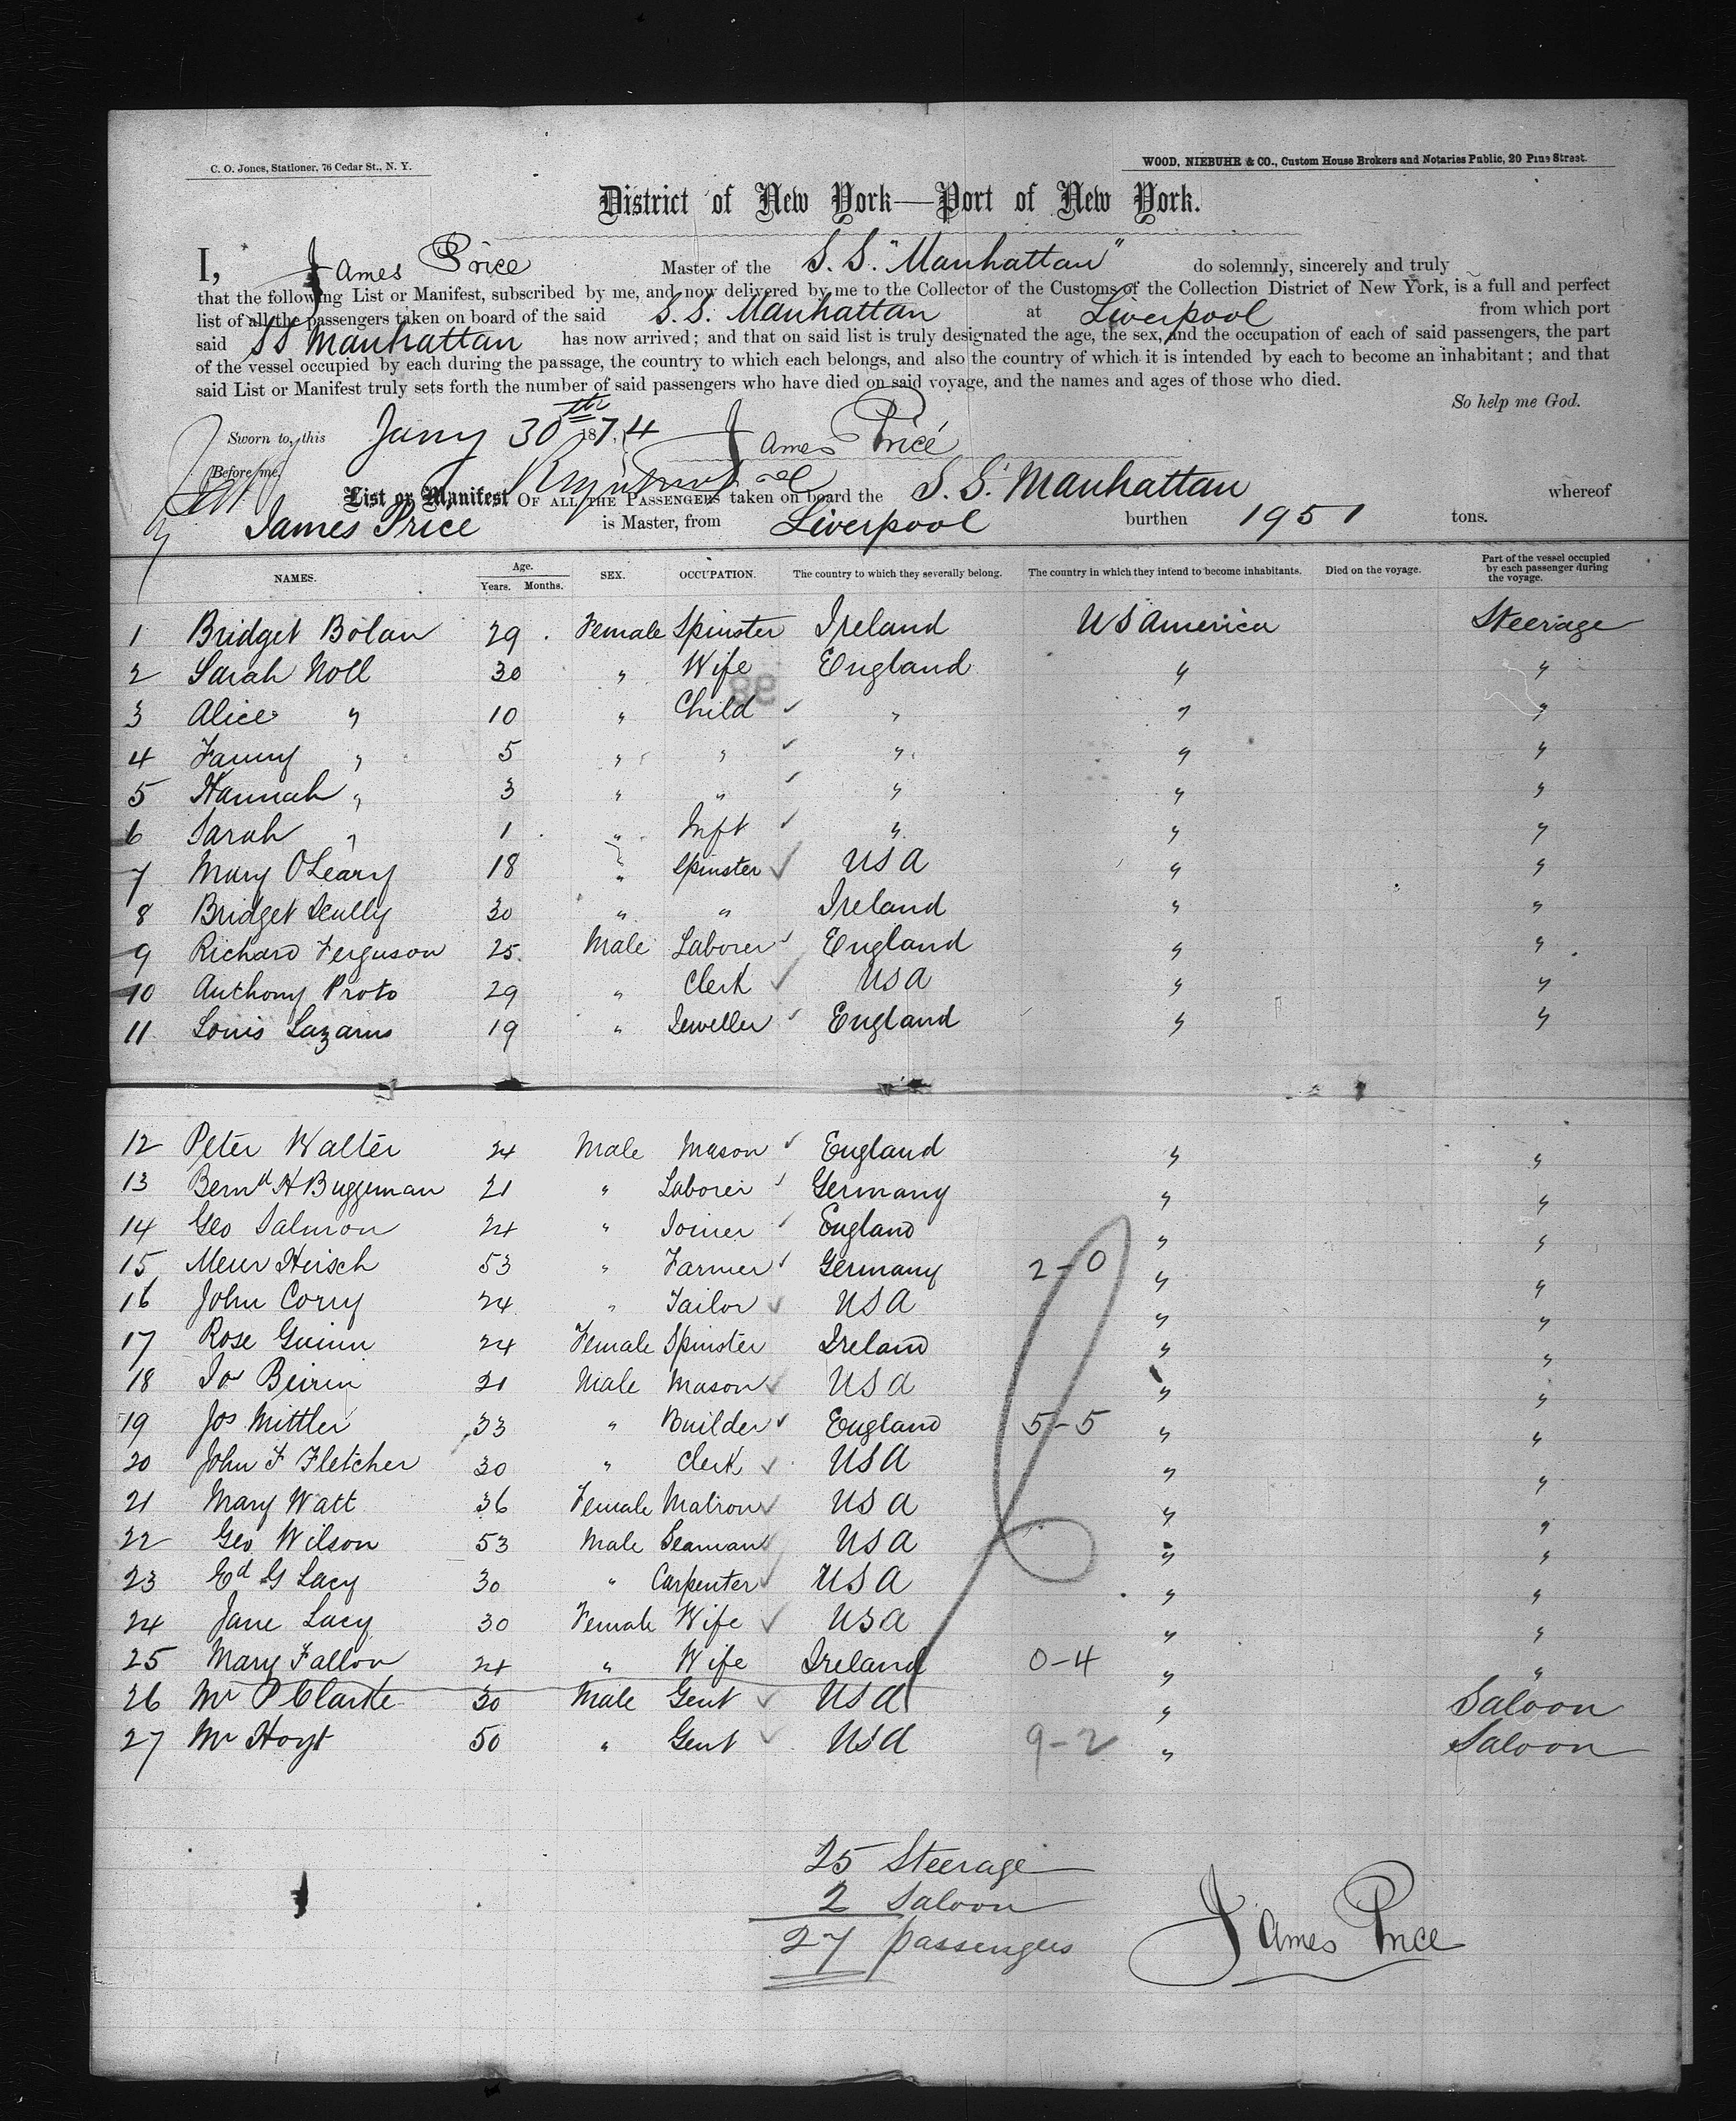 C. O. Jones, Stationer, 76 Cedar St., N. Y.
WOOD, NIEBUHR & CO., Custom House Brokers and Notaries Public, 20 Pine Street.
District of New York—Port of New York.
I, James Price Master of the S. S. "Manhattan" do solemnly, sincerely and truly
that the following List or Manifest, subscribed by me, and now delivered by me to the Collector of the Customs of the Collection District of New York, is a full and perfect
list of all the passengers taken on board of the said S. S. Manhattan at Liverpool from which port
said SS Manhattan has now arrived; and that on said list is truly designated the age, the sex, and the occupation of each of said passengers, the part
of the vessel occupied by each during the passage, the country to which each belongs, and also the country of which it is intended by each to become an inhabitant; and that
said List or Manifest truly sets forth the number of said passengers who have died on said voyage, and the names and ages of those who died.
So help me God.
Sworn to, this Jany 30th 1874 James Price
Before me,
List or Manifest OF ALL THE PASSENGERS taken on board the S. S. Manhattan whereof
James Price is Master, from Liverpool burthen 1951 tons.
NAMES. Age. Years. Months. SEX. OCCUPATION. The country to which they severally belong. The country in which they intend to become inhabitants. Died on the voyage. Part of the vessel occupied by each passenger during the voyage.
1 Bridget Bolan 29 Female Spinster Ireland US America Steerage
2 Sarah Noll 30 " Wife England " "
3 Alice " 10 " Child " " "
4 Fanny " 5 " " " " "
5 Hannah " 3 " " " " "
6 Sarah " 1 " Inft " " "
7 Mary O'Leary 18 " Spinster USA " "
8 Bridget Scully 30 " " Ireland " "
9 Richard Ferguson 25 Male Laborer England " "
10 Anthony Proto 29 " Clerk USA " "
11 Louis Lazarus 19 " Jeweller England " "
12 Peter Walter 24 Male Mason England " "
13 Bernd H Buggeman 21 " Laborer Germany " "
14 Geo Salmon 24 " Joiner England " "
15 Meur Hirsch 53 " Farmer Germany 2-0 " "
16 John Corry 24 " Tailor USA " "
17 Rose Guinn 24 Female Spinster Ireland " "
18 Jo Beirin 21 Male Mason USA " "
19 Jos Mittler 33 " Builder England 5-5 " "
20 John F Fletcher 30 " Clerk USA " "
21 Mary Watt 36 Female Matron USA " "
22 Geo Wilson 53 Male Seaman USA " "
23 Ed G Lacy 30 " Carpenter USA " "
24 Jane Lacy 30 Female Wife USA " "
25 Mary Fallon 24 " Wife Ireland 0-4 " "
26 Mr P Clarke 30 Male Gent USA " Saloon
27 Mr Hoyt 50 " Gent USA 9-2 " Saloon
25 Steerage
2 Saloon
27 passengers
James Price